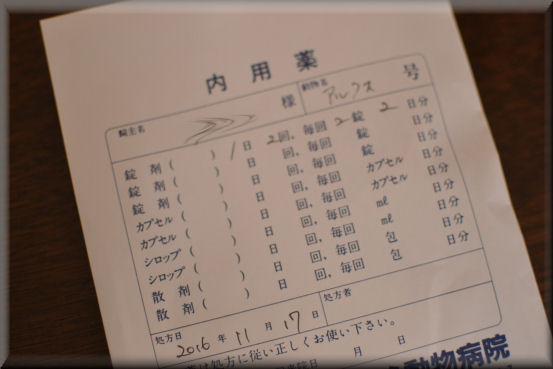 内用薬
飼主名 様 動物名 アルフス 号
錠 剤 ( ) 1日 2回, 毎回 2錠 2日分
錠 剤 ( ) 日 回, 毎回 錠 日分
錠 剤 ( ) 日 回, 毎回 錠 日分
カプセル ( ) 日 回, 毎回 カプセル 日分
カプセル ( ) 日 回, 毎回 カプセル 日分
シロップ ( ) 日 回, 毎回 ml 日分
シロップ ( ) 日 回, 毎回 ml 日分
散 剤 ( ) 日 回, 毎回 包 日分
散 剤 ( ) 日 回, 毎回 包 日分
処方日 処方者
2016年 11月 17日
は処方に従い正しくお使い下さい。
院日 月 日
動物病院